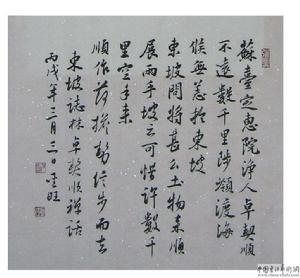 蘇臺定惠院淨人卓契順
不遠數千里陟嶺渡海
候無恙於東坡
東坡問將甚麼土物來順
展兩手坡云可惜許數千
里空手來
順作荷擔勢信步而去
東坡誌林卓契順禪話
丙戌年三月三日